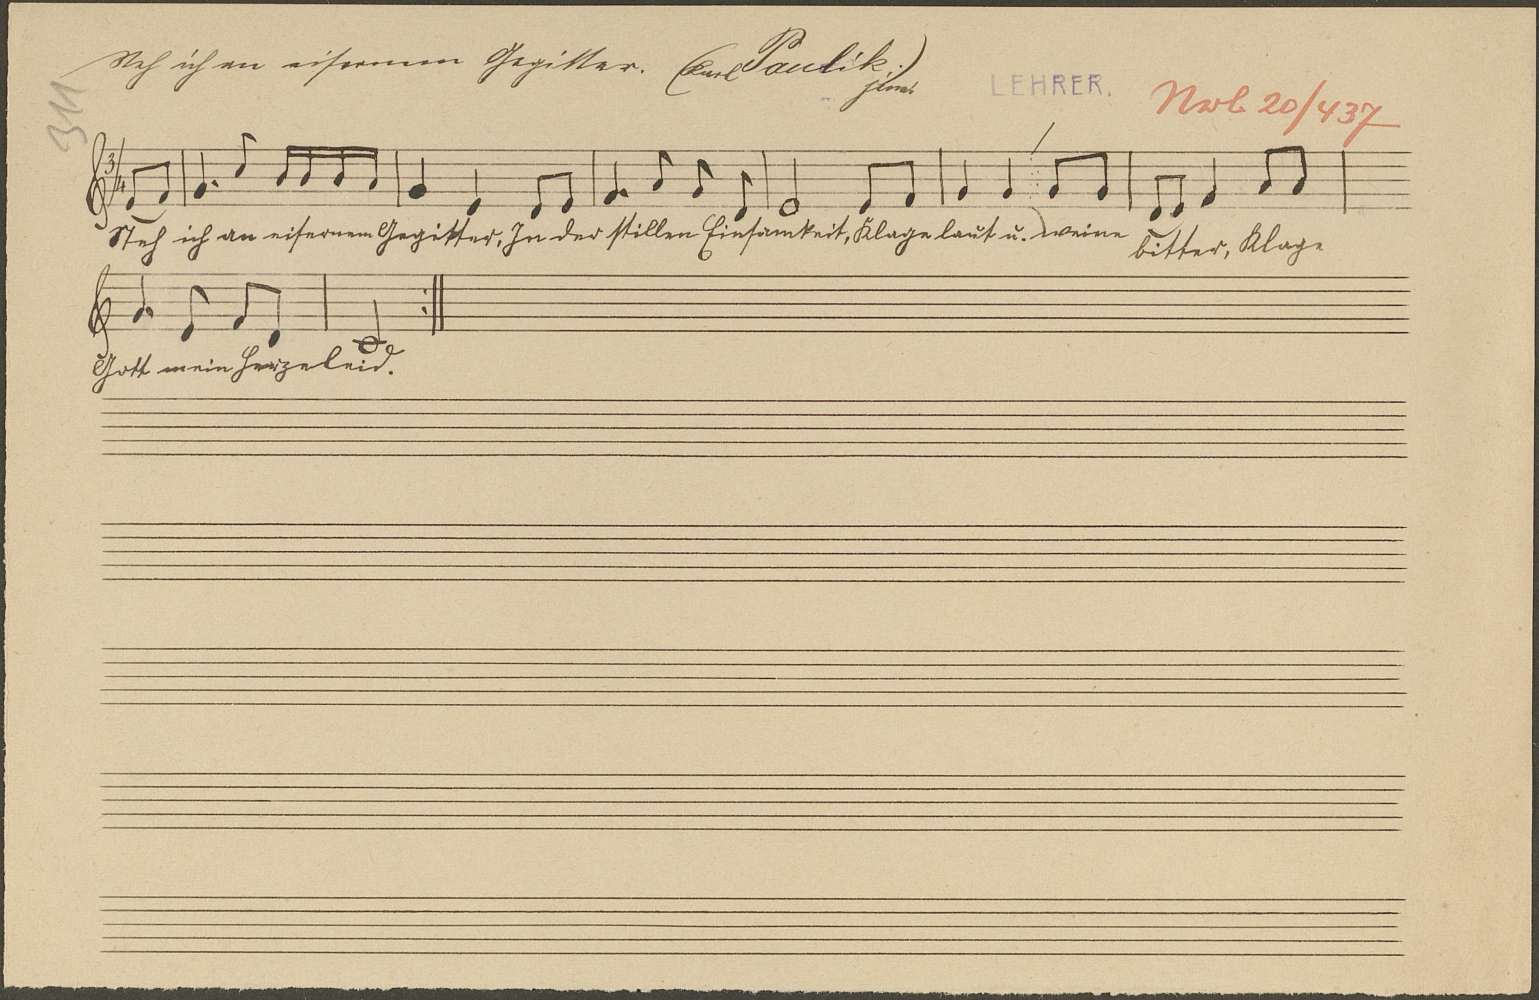 Steh ich an eisernem Gegitter. (Karl Paulik.)
jun.
LEHRER.
Nerb 20/437
311
3/4
Steh ich an eisernem Gegitter, In der stillen Einsamkeit, Klage laut u. weine bitter, Klage
Gott mein Herzeleid.